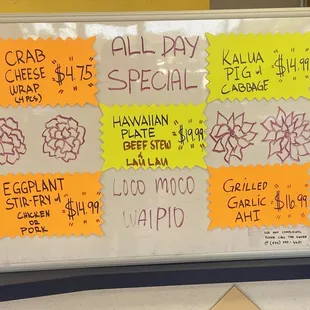 CRAB
CHEESE
WRAP
(4PCS)
"$4.75"
ALL DAY
SPECIAL
KALUA
PIG &
CABBAGE
"$14.99"
HAWAIIAN
PLATE
BEEF STEW
&
LAU LAU
"$19.99"
EGGPLANT
STIR-FRY &
CHICKEN
OR
PORK
"$14.99"
LOCO MOCO
WAIPIO
GRILLED
GARLIC
AHI
"$16.99"